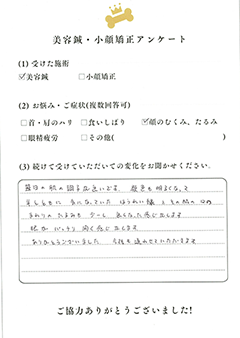 美容鍼・小顔矯正アンケート
(1) 受けた施術
☑美容鍼 □小顔矯正
(2) お悩み・ご症状(複数回答可)
□首・肩のハリ □食いしばり ☑顔のむくみ、たるみ
□眼精疲労 □その他( )
(3) 続けて受けていただいての変化をお聞かせください。
毎日の肌の調子が良いです。顔色も明るくなって
気になっていた ほうれい線 と
まわりのたるみも 少し 良くなった感じがします
パッチリ 開く感じがします
ありがとうございました
ご協力ありがとうございました!